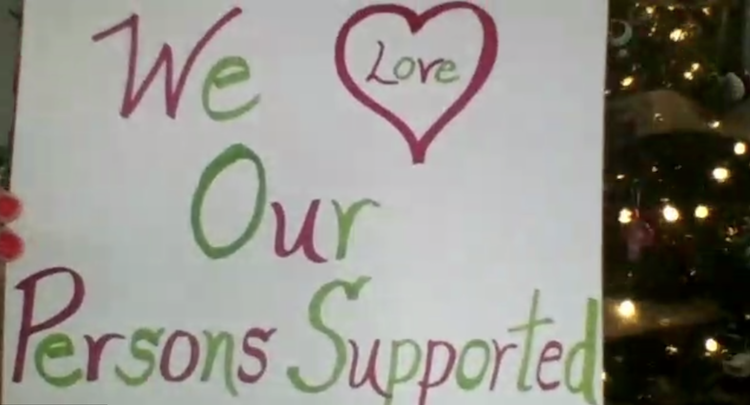 We Love
Our
Persons Supported